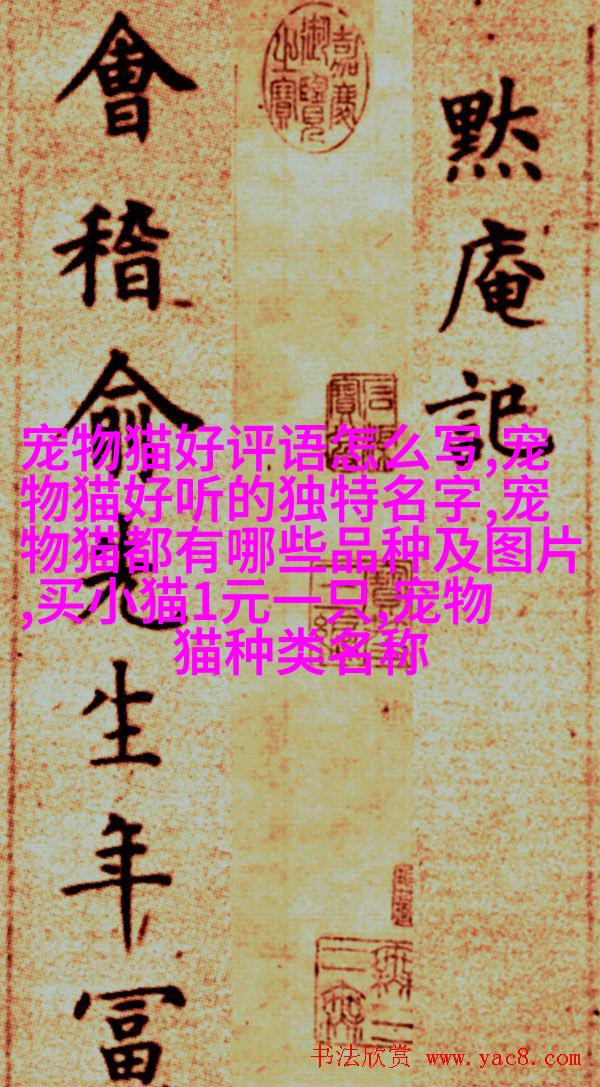 黙庵記
嘉慶
御覽
之寶
會稽俞先生年冨
宠物猫好评语怎么写,宠
物猫好听的独特名字,宠
物猫都有哪些品种及图片
,买小猫1元一只,宠物
猫种类名称
书法欣赏 www.yac8.com